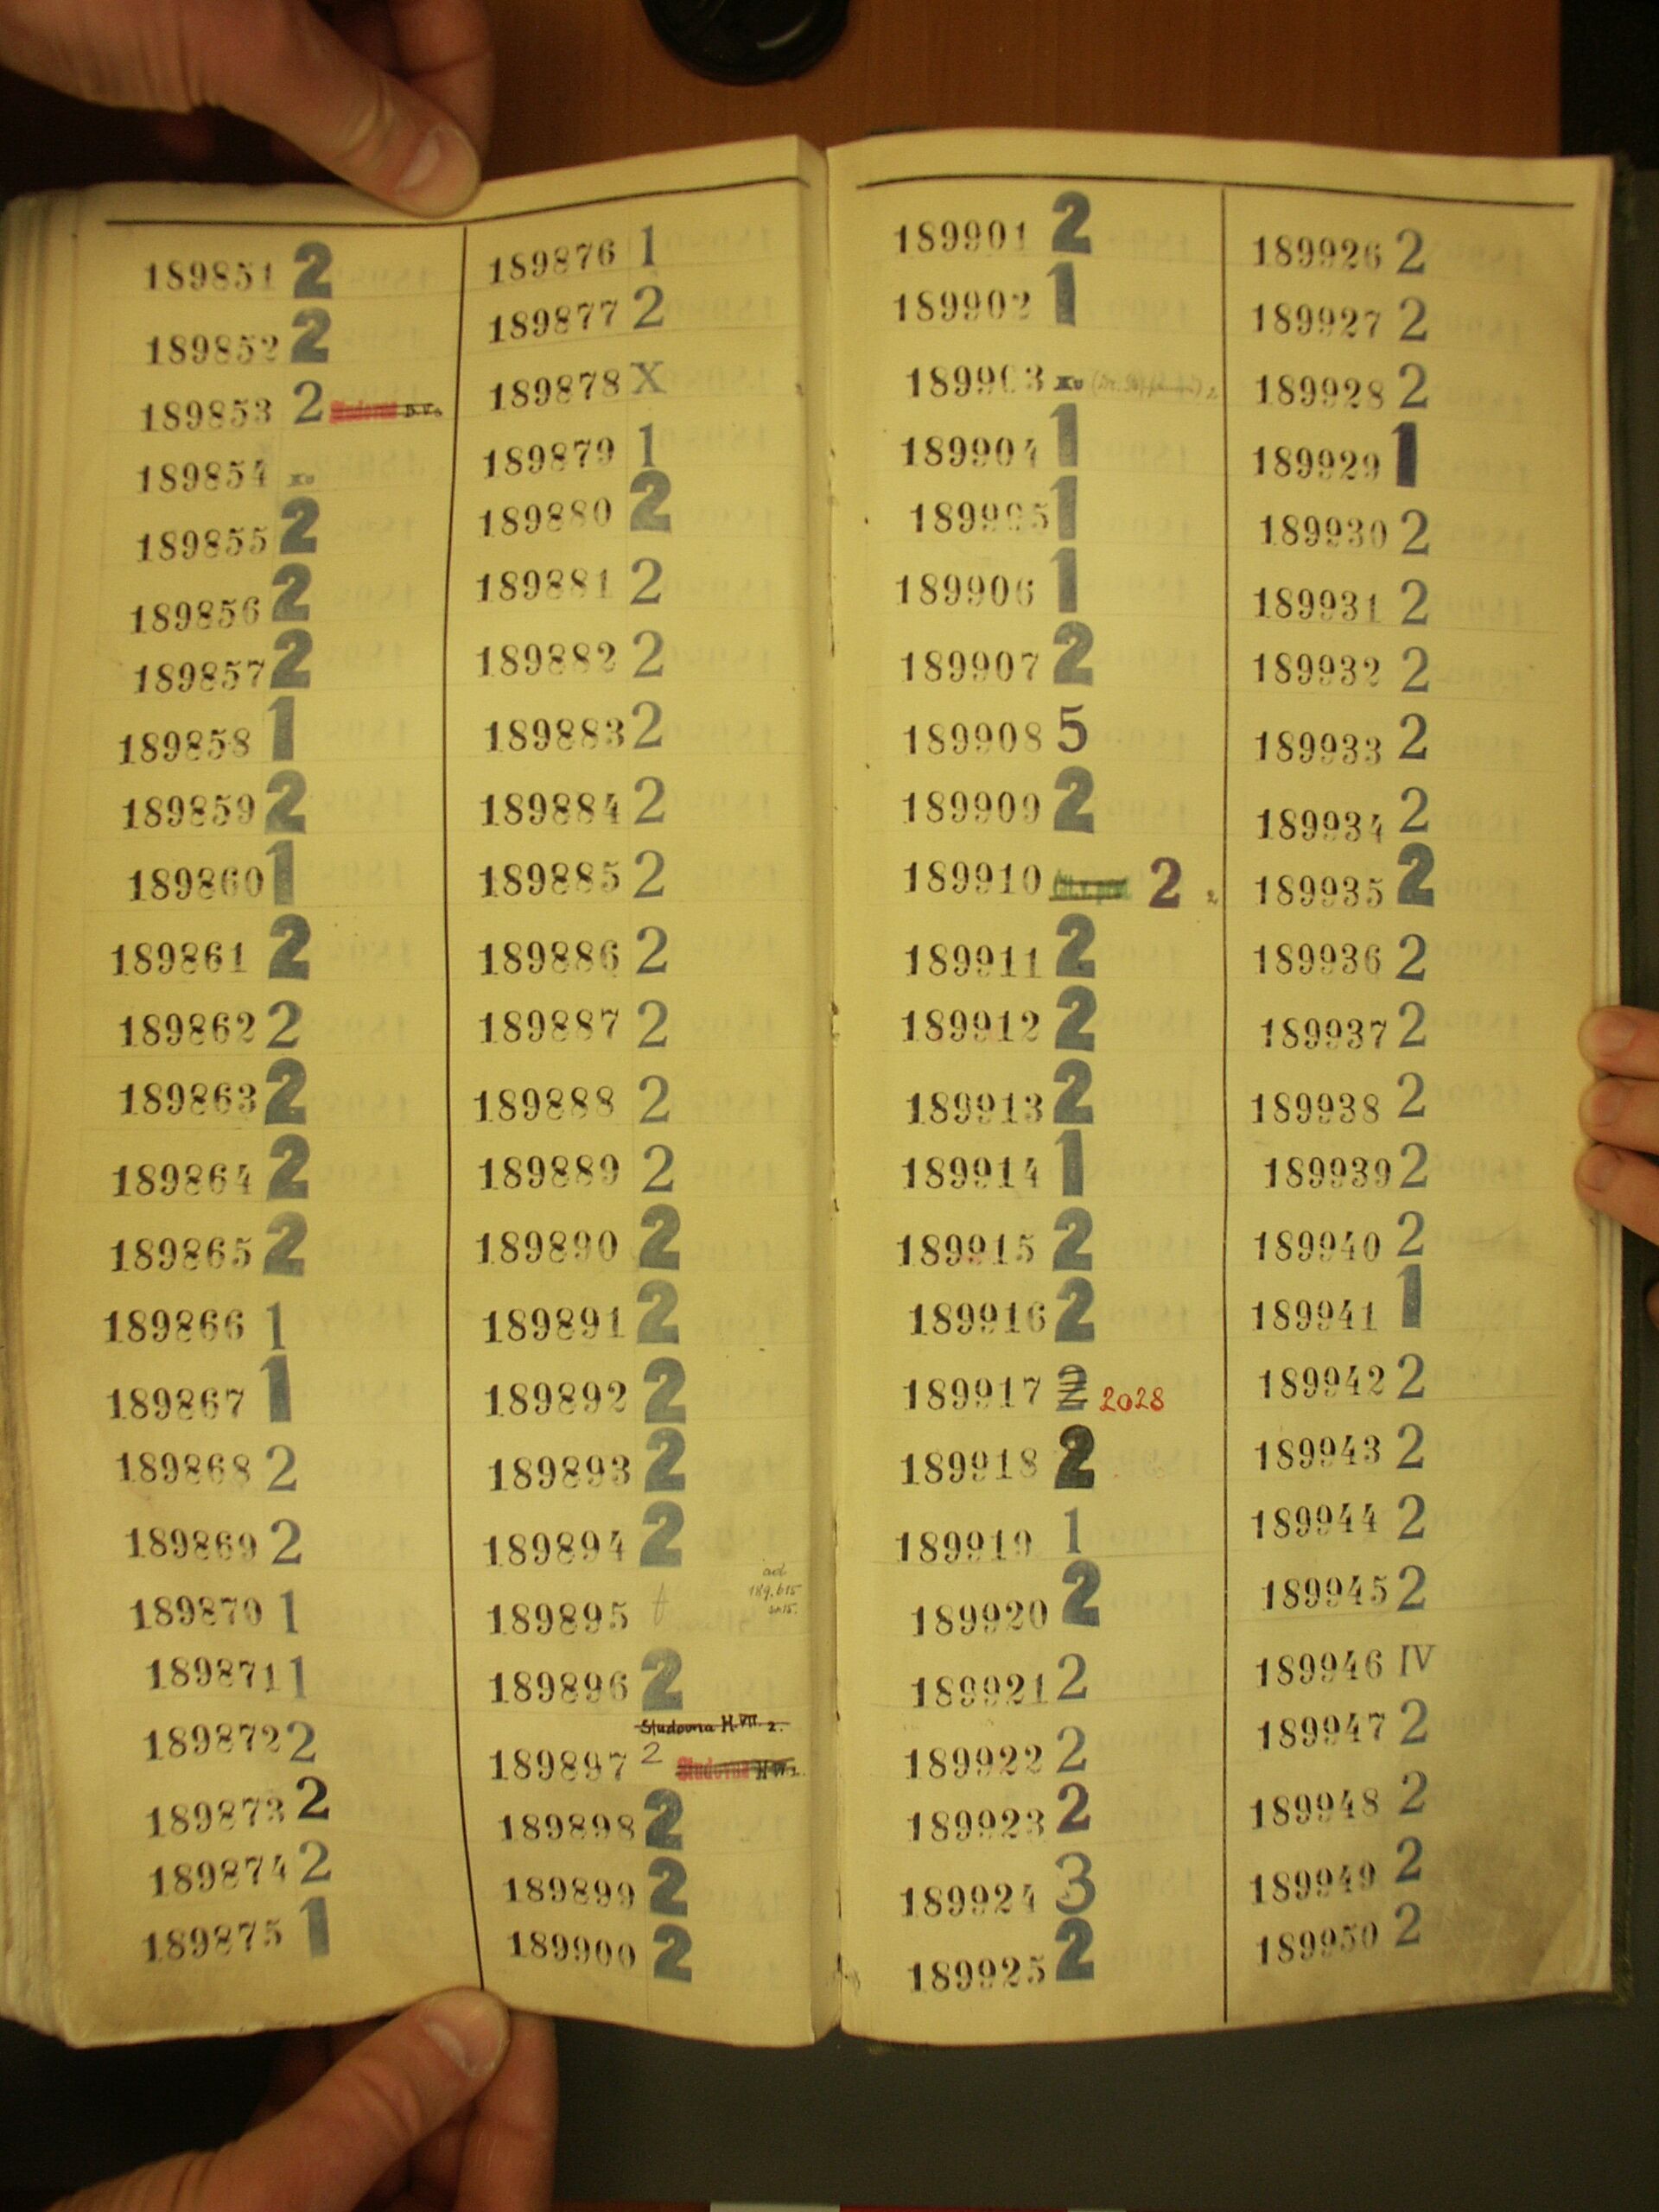 189851 2
189852 2
189853 2 Studovna
189854 xv
189855 2
189856 2
189857 2
189858 1
189859 2
189860 1
189861 2
189862 2
189863 2
189864 2
189865 2
189866 1
189867 1
189868 2
189869 2
189870 1
189871 1
189872 2
189873 2
189874 2
189875 1
189876 1
189877 2
189878 X
189879 1
189880 2
189881 2
189882 2
189883 2
189884 2
189885 2
189886 2
189887 2
189888 2
189889 2
189890 2
189891 2
189892 2
189893 2
189894 2
ad
189895 t 189,615
189896 2
Studovna H.VII. 2.
189897 2 Studovna H VII
189898 2
189899 2
189900 2
189901 2
189902 1
189903 xv
189904 1
189905 1
189906 1
189907 2
189908 5
189909 2
189910 2 2
189911 2
189912 2
189913 2
189914 1
189915 2
189916 2
189917 2 2028
189918 2
189919 1
189920 2
189921 2
189922 2
189923 2
189924 3
189925 2
189926 2
189927 2
189928 2
189929 1
189930 2
189931 2
189932 2
189933 2
189934 2
189935 2
189936 2
189937 2
189938 2
189939 2
189940 2
189941 1
189942 2
189943 2
189944 2
189945 2
189946 IV
189947 2
189948 2
189949 2
189950 2